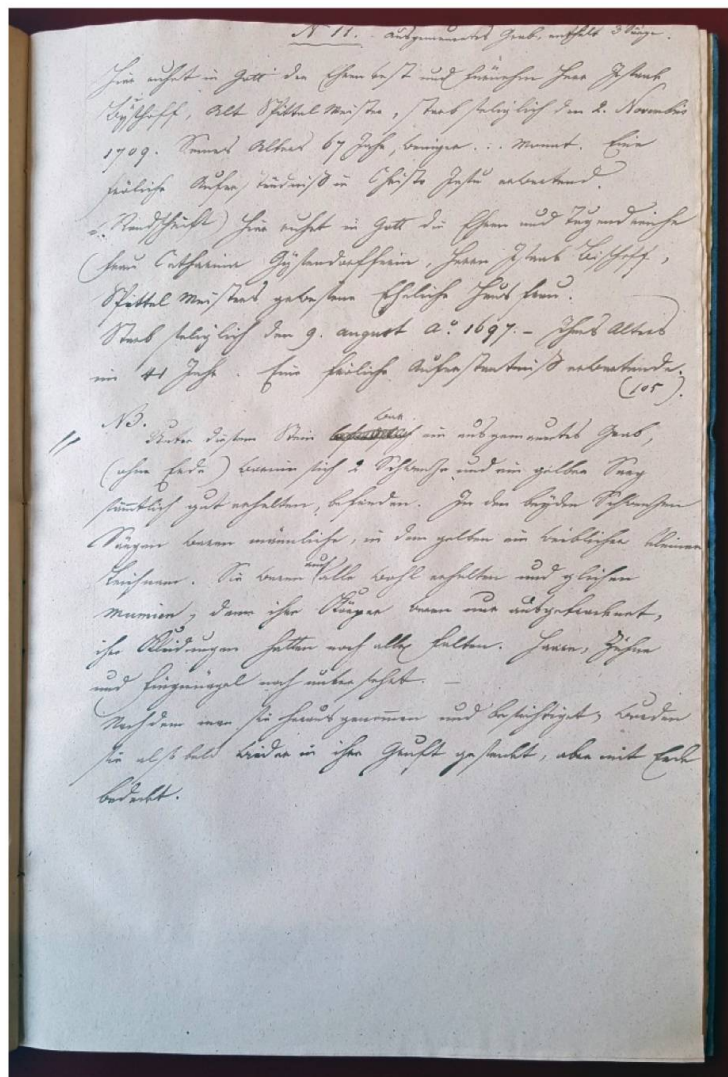 N° 11. ausgemauertes Grab, enthält 3 Särge.
Hier ruhet in Gott der Ehrenvest und Fürnehm Herr Isaac
Byschoff, Alt Spittel Meister, starb seliglich den 2. Novembris
1709. Seines Alters 67 Jahr, weniger . : . Monat. Eine
fröliche Auferständniß in Christo Jesu erwartend.
Randschrift) Hier ruhet in Gott die Ehren und Tugendreiche
Frau Catharina, Herrn Isaac Bischoff,
Spittel Meisters gewesene Eheliche Hausfrau.
Starb seliglich den 9. august A° 1697. – Ihres Alters
im 41 Jahr. Eine fröliche Auferstentniß erwartende.
(105).
NB.
Unter diesem Stein war ein ausgemauertes Grab,
(ohne Erde) worinn sich 2 Schwarze und ein gelber Sarg
sämtlich gut erhalten, befinden. In den beyden Schwarzen
Särgen waren männliche, in dem gelben ein weiblicher kleiner
Leichnam. Sie waren auch alle wohl erhalten und glichen
Mumien, denn ihre Körper waren nur ausgetrocknet,
ihre Kleidungen hatten noch alle Falten. Haare, Zähne
und Fingernägel noch unversehrt. –
Nachdem man sie herausgenommen und besichtiget, wurden
sie alsobald wieder in ihre Gruft gesenkt, aber mit Erde
bedeckt.